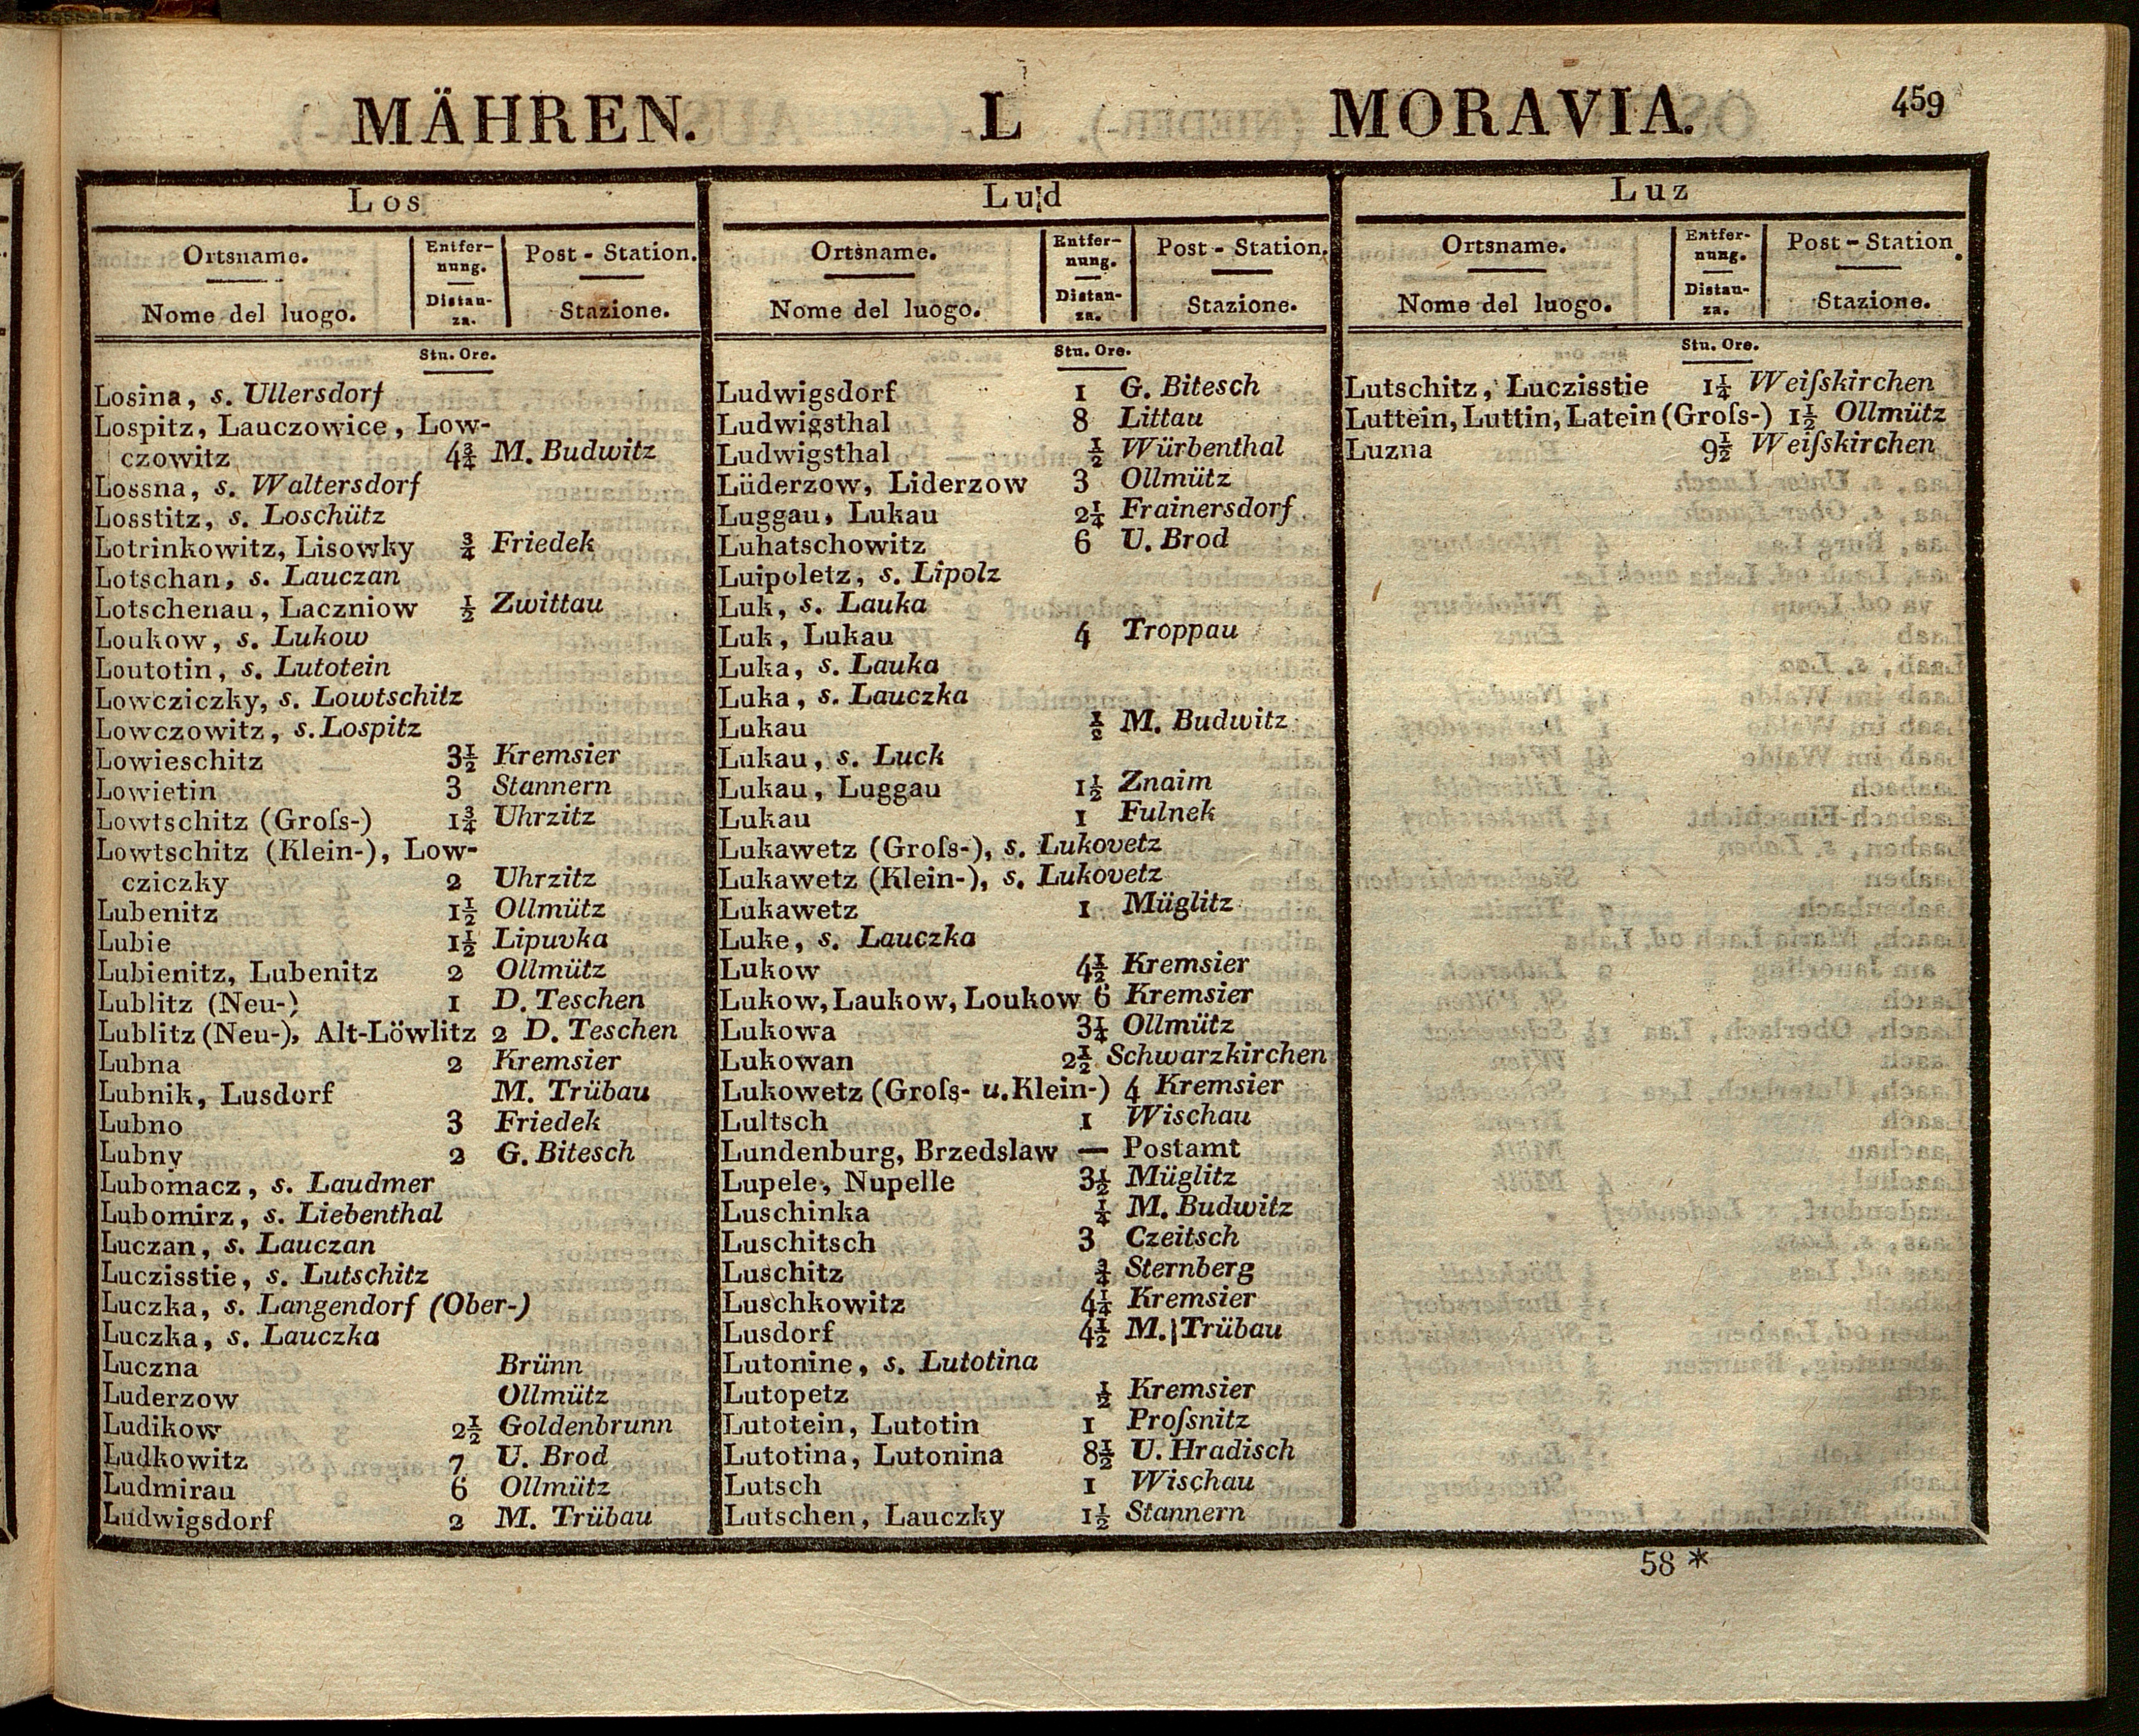 MÄHREN. L MORAVIA. 459
Los
Ortsname. Entfer- Post-Station.
nung.
Nome del luogo. Distan- Stazione.
za.
Stu. Ore.
Losina, s. Ullersdorf
Lospitz, Lauczowice, Low-
czowitz 4¾ M. Budwitz
Lossna, s. Waltersdorf
Losstitz, s. Loschütz
Lotrinkowitz, Lisowky ¾ Friedek
Lotschan, s. Lauczan
Lotschenau, Laczniow ½ Zwittau
Loukow, s. Lukow
Loutotin, s. Lutotein
Lowcziczky, s. Lowtschitz
Lowczowitz, s. Lospitz
Lowieschitz 3½ Kremsier
Lowietin 3 Stannern
Lowtschitz (Groſs-) 1¾ Uhrzitz
Lowtschitz (Klein-), Low-
cziczky 2 Uhrzitz
Lubenitz 1½ Ollmütz
Lubie 1½ Lipuvka
Lubienitz, Lubenitz 2 Ollmütz
Lublitz (Neu-) 1 D. Teschen
Lublitz (Neu-), Alt-Löwlitz 2 D. Teschen
Lubna 2 Kremsier
Lubnik, Lusdorf M. Trübau
Lubno 3 Friedek
Lubny 2 G. Bitesch
Lubomacz, s. Laudmer
Lubomirz, s. Liebenthal
Luczan, s. Lauczan
Luczisstie, s. Lutschitz
Luczka, s. Langendorf (Ober-)
Luczka, s. Lauczka
Luczna Brünn
Luderzow Ollmütz
Ludikow 2½ Goldenbrunn
Ludkowitz 7 U. Brod
Ludmirau 6 Ollmütz
Ludwigsdorf 2 M. Trübau
Lud
Ortsname. Entfer- Post-Station.
nung.
Nome del luogo. Distan- Stazione.
za.
Stu. Ore.
Ludwigsdorf 1 G. Bitesch
Ludwigsthal 8 Littau
Ludwigsthal ½ Würbenthal
Lüderzow, Liderzow 3 Ollmütz
Luggau, Lukau 2¼ Frainersdorf
Luhatschowitz 6 U. Brod
Luipoletz, s. Lipolz
Luk, s. Lauka
Luk, Lukau 4 Troppau
Luka, s. Lauka
Luka, s. Lauczka
Lukau ½ M. Budwitz
Lukau, s. Luck
Lukau, Luggau 1½ Znaim
Lukau 1 Fulnek
Lukawetz (Groſs-), s. Lukovetz
Lukawetz (Klein-), s. Lukovetz
Lukawetz 1 Müglitz
Luke, s. Lauczka
Lukow 4½ Kremsier
Lukow, Laukow, Loukow 6 Kremsier
Lukowa 3¼ Ollmütz
Lukowan 2½ Schwarzkirchen
Lukowetz (Groſs- u. Klein-) 4 Kremsier
Lultsch 1 Wischau
Lundenburg, Brzedslaw — Postamt
Lupele, Nupelle 3½ Müglitz
Luschinka ¼ M. Budwitz
Luschitsch 3 Czeitsch
Luschitz ¾ Sternberg
Luschkowitz 4¼ Kremsier
Lusdorf 4½ M. Trübau
Lutonine, s. Lutotina
Lutopetz ½ Kremsier
Lutotein, Lutotin 1 Proſsnitz
Lutotina, Lutonina 8½ U. Hradisch
Lutsch 1 Wischau
Lutschen, Lauczky 1½ Stannern
Luz
Ortsname. Entfer- Post-Station.
nung.
Nome del luogo. Distan- Stazione.
za.
Stu. Ore.
Lutschitz, Luczisstie 1¼ Weiſskirchen
Luttein, Luttin, Latein (Groſs-) 1½ Ollmütz
Luzna 9½ Weiſskirchen
58 *